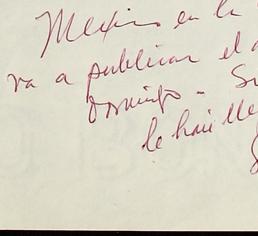 Mexico en la
va a publicar el a
Domingo - Su
le hau lle